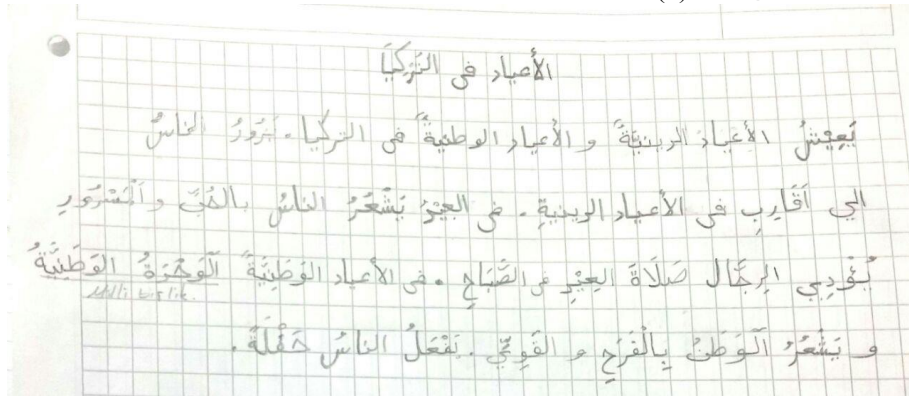 الأعياد في التركيَا
يَعِيْشُ الأعيادَ الدينيّةً و الأعياد الوطنيةً في التركيا. يَزُورُ الناسُ
الي أَقَارِبِ في الأعياد الدينيةِ. في العِيْدِ يَشْعُرُ الناسُ بالحُبِّ و اَلْمَسْرُورِ
يُؤَدِيي الرِجَال صَلَاةَ العِيْدِ في الصَّبَاحِ. في الأعياد الوَطَنِيَّةً اَلْوَحْدَةُ الوَطَنِيَّةُ
Milli birlik.
و يَشْعُرُ اَلْوَطَنُ بِالْفَرَحِ و القَوِيِّ. يَفْعَلُ الناسُ حَفْلَةً.